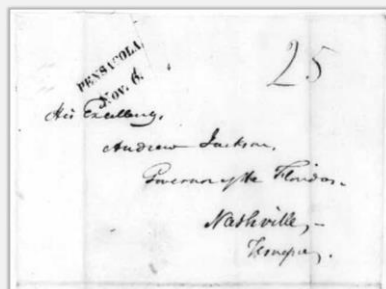 PENSACOLA
Nov. 6.
25
His Excellency,
Andrew Jackson,
Governor of the Floridas.
Nashville, -